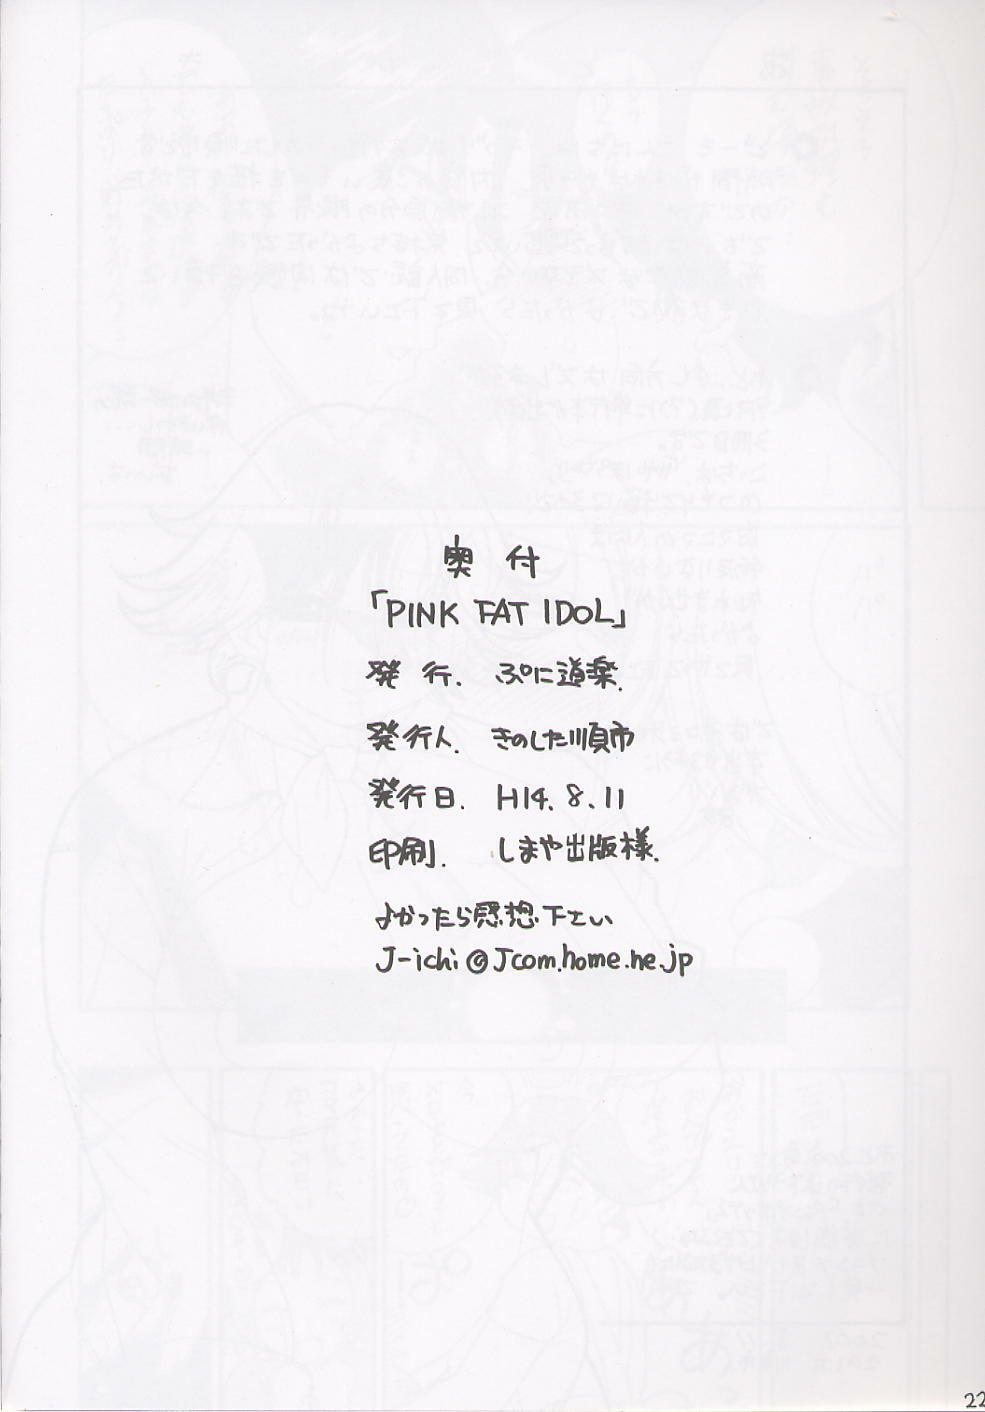 奥付
「PINK FAT IDOL」
発行. ぷに道楽.
発行人. きのした順市
発行日. H14.8.11
印刷. しまや出版様.
よかったら感想下さい
J-ichi@Jcom.home.ne.jp
22